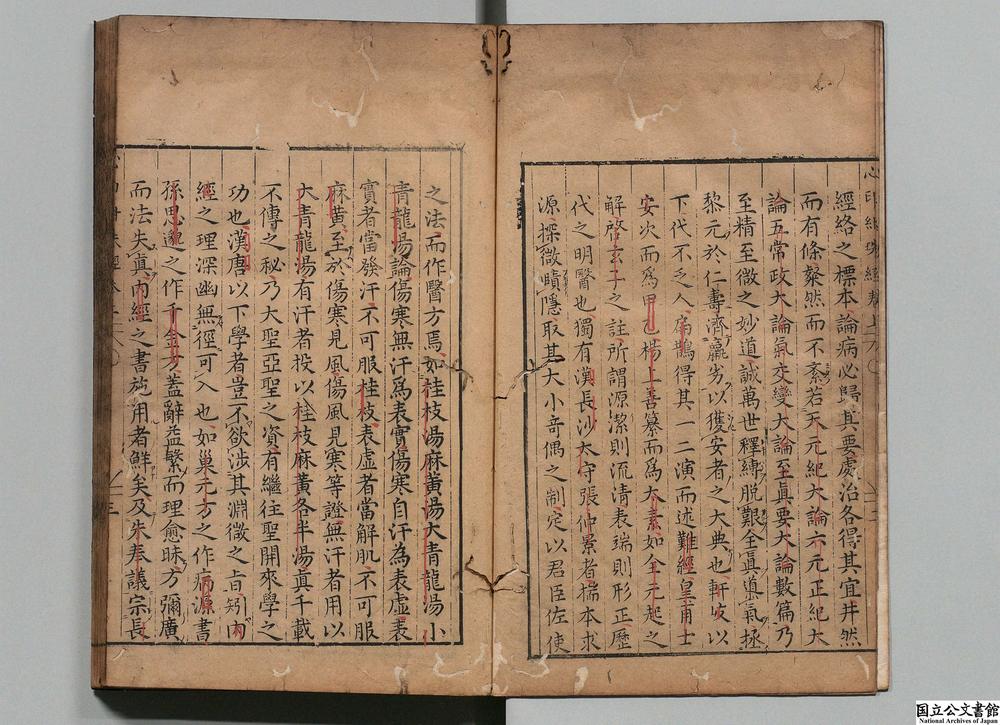 經絡之標本論病必歸其要處治各得其宜井然
而有條粲然而不紊若天元紀大論六元正紀大
論五常政大論氣交變大論至眞要大論數篇乃
至精至微之妙道誠萬世釋縛脫艱全眞導氣拯
黎元於仁壽濟羸劣以獲安者之大典也軒岐以
下代不乏人扁鵲得其一二演而述難經皇甫士
安次而爲甲乙楊上善纂而爲大素如全元起之
解啓玄子之註所謂源潔則流清表端則形正歷
代之明醫也獨有漢長沙太守張仲景者揣本求
源探微賾隱取其大小竒偶之制定以君臣佐使
之法而作醫方焉如桂枝湯麻黃湯大青龍湯小
青龍湯論傷寒無汗爲表實傷寒自汗為表虛表
實者當發汗不可服桂枝表虛者當解肌不可服
麻黃至於傷寒見風傷風見寒等證無汗者用以
大青龍湯有汗者投以桂枝麻黃各半湯眞千載
不傳之秘乃大聖亞聖之資有繼往聖開來學之
功也漢唐以下學者豈不欲涉其淵微之旨矧內
經之理深幽無徑可入也如巢元方之作病源書
孫思邈之作千金方蓋辭益繁而理愈昧方彌廣
而法失眞內經之書施用者鮮矣及朱奉議宗長
国立公文書館
National Archives of Japan